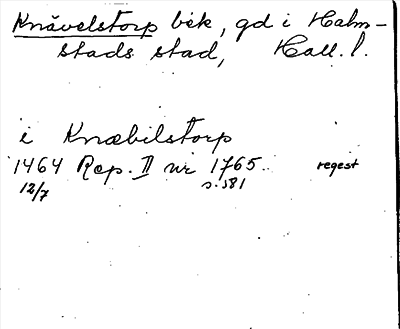 Knävelstorp bek, gd i Halm-
stads stad, Hall. l.
i Knæbilstorp
1464 Rep. II nr 1765. regest
12/7 s. 581